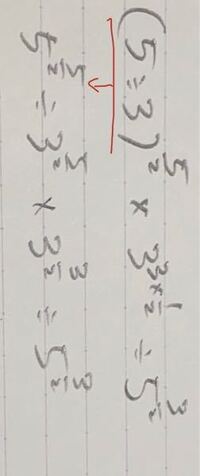 (5÷3)^{\frac{5}{2}} × 3^{3×\frac{1}{2}} ÷ 5^{\frac{3}{2}}
5^{\frac{5}{2}} ÷ 3^{\frac{5}{2}} × 3^{\frac{3}{2}} ÷ 5^{\frac{3}{2}}